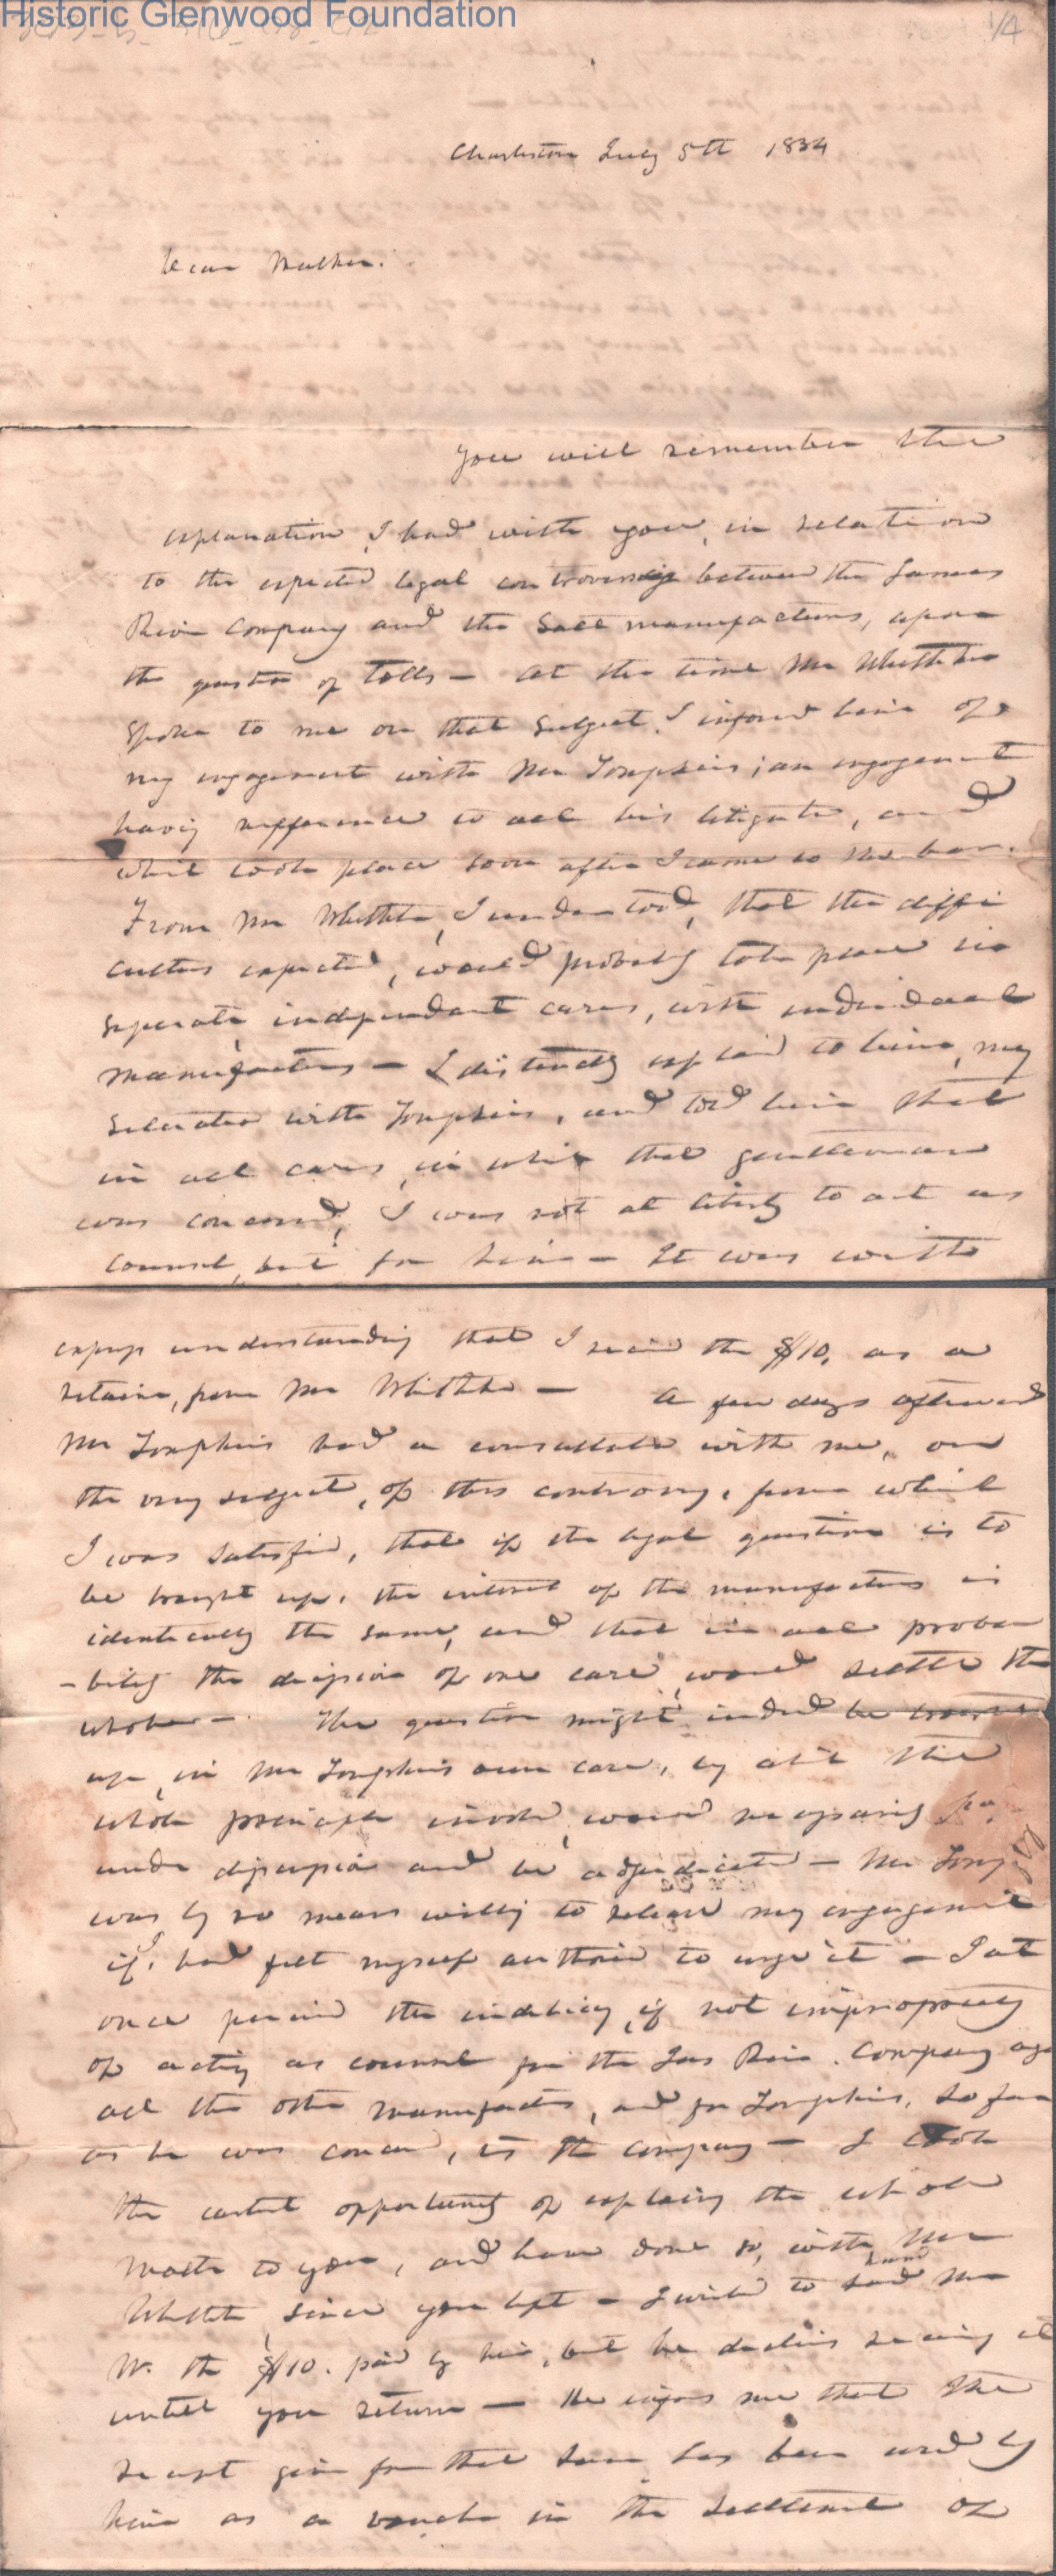 Historic Glenwood Foundation
1/4
Charleston July 5th 1834
Dear
You will remember the
explanation, I had with you, in relation
to the expected legal controversy between the James
River Company and the Salt manufacturers, upon
the question of Tolls — at the time Mr Whittaker
spoke to me on that subject, I informd him of
my engagement with Mr Tompkins; an engagement
having refference to all his litigation, and
which took place soon after I came to the bar.
From Mr Whittaker, I understood, that the diffi
culties expected, would probably take place in
seperate, independant cases, with individual
manufacturers — I distinctly explaind to him, my
situation with Tompkins, and told him that
in all cases, in which that gentleman
was concerned, I was not at liberty to act as
counsel, but for him — It was with
express understanding that I recivd the $10, as a
retainer, from Mr Whittaker — A few days afterward
Mr Tompkins had a consultation with me, on
the very subject, of this controversy, from which
I was satisfied, that if the legal question is to
be brought up, the interest of the manufacturers is
identically the same, and that in all proba
-bility the decission of one case, would settle the
whole — The question might, indeed be brought
up, in Mr Tompkins own case, by which the
whole principle involvd, would necessarily
under discussion and be adjudicated — Mr Tomp
was by no means willing to release my engagement
if I had felt myself authorisd to urge it — I at
once percivd the indelicacy, if not impropriety
of acting as counsel for the Jas River Company aga
all the other manufacturers, and for Tompkins, so far
as he was concernd, vs the company — I took
the earliest opportunity of explaining the whole
matter to you, and have done so, with Mr
Whittaker, since you left — I wishd to hand Mr
W. the $10. paid by him, but he declines receiving it
until you return — He informs me that the
receipt given for that sum has been used by
him as a voucher in the settlement of